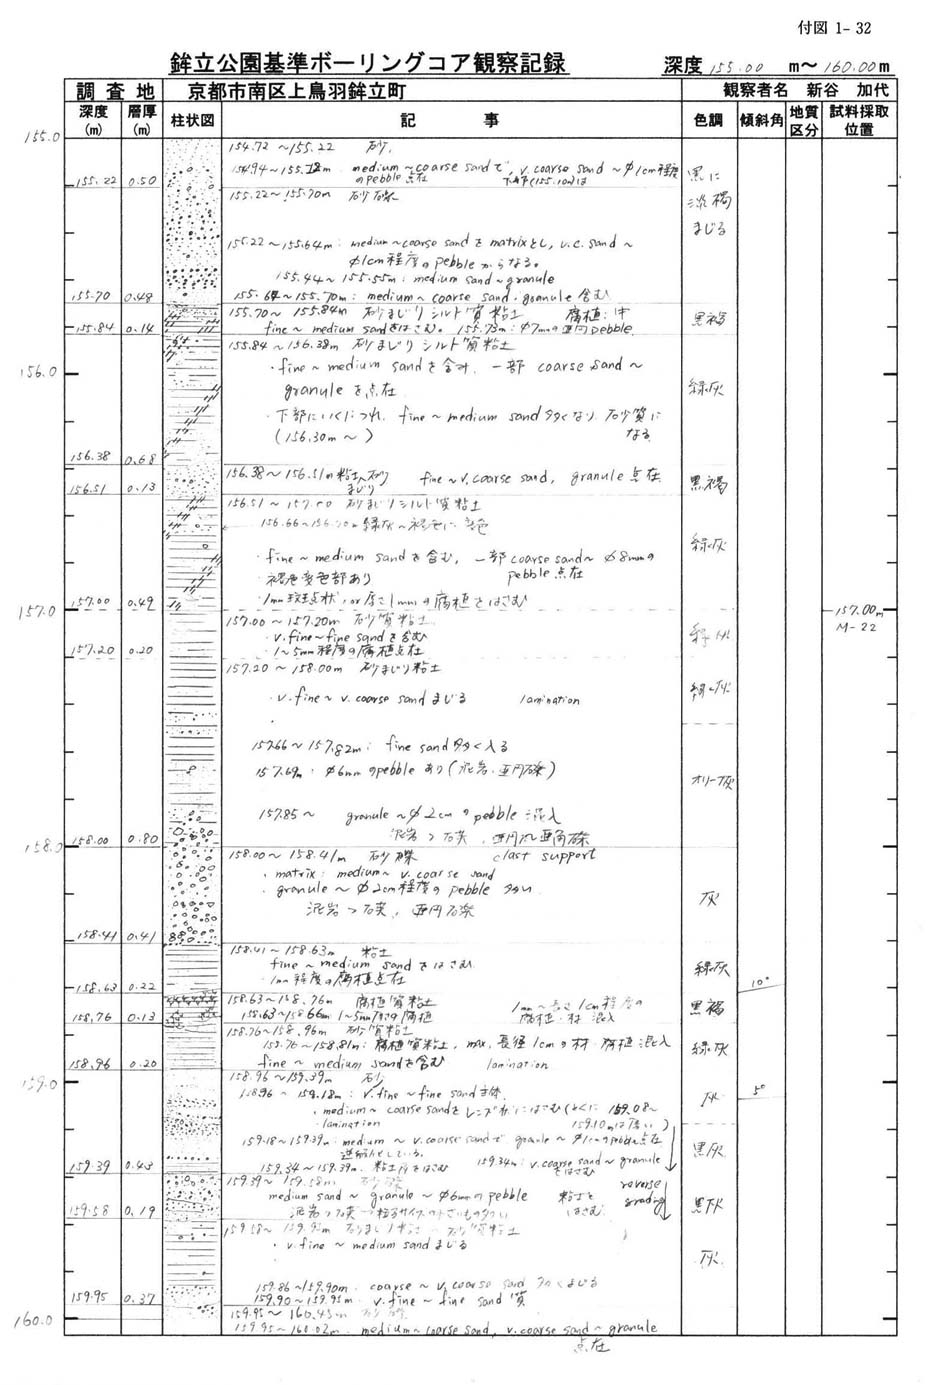 付図 1- 32
鉾立公園基準ボーリングコア観察記録
深度 155.00 m～160.00m
調 査 地
京都市南区上鳥羽鉾立町
観察者名 新谷 加代
深度(m)
層厚(m)
柱状図
記 事
色調
傾斜角
地質区分
試料採取位置
155.0
154.72 ～155.22 砂,
154.94～155.12m medium～coarse sandで, v.coarse sand ～φ1cm程度
のpebble点在 下部(155.10m)は
155.22 0.50
黒に
淡褐
まじる
155.22～155.70m 砂礫
155.22～155.64m: medium～coarse sandをmatrixとし, v.c. sand～
φ1cm程度のpebbleからなる。
155.44～155.55m: medium sand～granule
155.70 0.48
155.64～155.70m: medium～coarse sand・granule含む
155.70～155.84m 砂まじりシルト質粘土 腐植:中
黒褐
155.84 0.14
fine～medium sandをはさむ。155.73m: φ7mmの亜円pebble
155.84～156.38m 砂まじりシルト質粘土
156.0
・fine～medium sandを含み, 一部 coarse sand～
granuleを点在
緑灰
・下部にいくにつれ, fine～medium sand多くなり, 砂質に
(156.30m～) なる
156.38 0.68
156.38～156.51m粘土砂まじり fine～v.coarse sand, granule点在
黒褐
156.51 0.13
156.51～157.00 砂まじりシルト質粘土
156.66～156.70m緑灰～褐色に変色
緑灰
・fine～medium sandを含む, 一部coarse sand～φ8mmの
pebble点在
・褐色変色部あり
157.00 0.49
・1mm斑点状, or厚さ1mmの腐植をはさむ
157.0
157.00m
M-22
157.00～157.20m 砂質粘土
・v.fine～fine sandを含む
緑灰
157.20 0.20
1～5mm程度の腐植点在
157.20～158.00m 砂まじり粘土
・v.fine～v.coarse sandまじる lamination
緑灰
157.66～157.82m: fine sand多く入る
157.69m: φ6mmのpebbleあり(泥岩・亜円礫)
オリーブ灰
157.85～ granule～φ2cmのpebble混入
泥岩>石英, 亜円礫亜角礫
158.00 0.80
158.0
158.00～158.41m 砂礫 clast support
・matrix: medium～v.coarse sand
・granule～φ2cm程度のpebble多い
泥岩>石英, 亜円礫
灰
158.41 0.41
158.41～158.63m 粘土
fine～medium sandをはさむ
・1mm程度の腐植点在
緑灰
10°
158.63 0.22
158.63～158.76m 腐植質粘土 1mm～長さ1cm程度の
158.63～158.66m 1～5mm 腐植 腐植・材 混入
黒褐
158.76 0.13
158.76～158.96m 砂質粘土
158.76～158.81m: 腐植質粘土, max, 長径1cmの材・腐植混入
緑灰
158.96 0.20
fine～medium sandを含む lamination
158.96～159.39m 砂
159.0
158.96～159.18m: v.fine～fine sand主体
灰
5°
・medium～coarse sandをレンズ状にはさむ(とくに 159.08～
・lamination 159.10mは )
159.18～159.39m: medium～v.coarse sandでgranule～φ1cmのpebble点在
黒灰
している。 159.34m: v.coarse sand～granule
159.34～159.39m. 粘土 をはさむ をはさむ
159.39 0.43
159.39～159.58m 砂礫 reverse
medium sand～granule～φ6mmのpebble 粘土をはさむ grading
黒灰
泥岩>石英
159.58 0.19
159.58～159.95m 砂まじり粘土～砂質粘土
・v.fine～medium sandまじる
灰
159.86～159.90m. coarse～v.coarse sand多くまじる
159.95 0.37
159.90～159.95m. v.fine～fine sand質
159.95～160.45m 砂礫
160.0
159.95～160.02m. medium～coarse sand, v.coarse sand～granule
点在